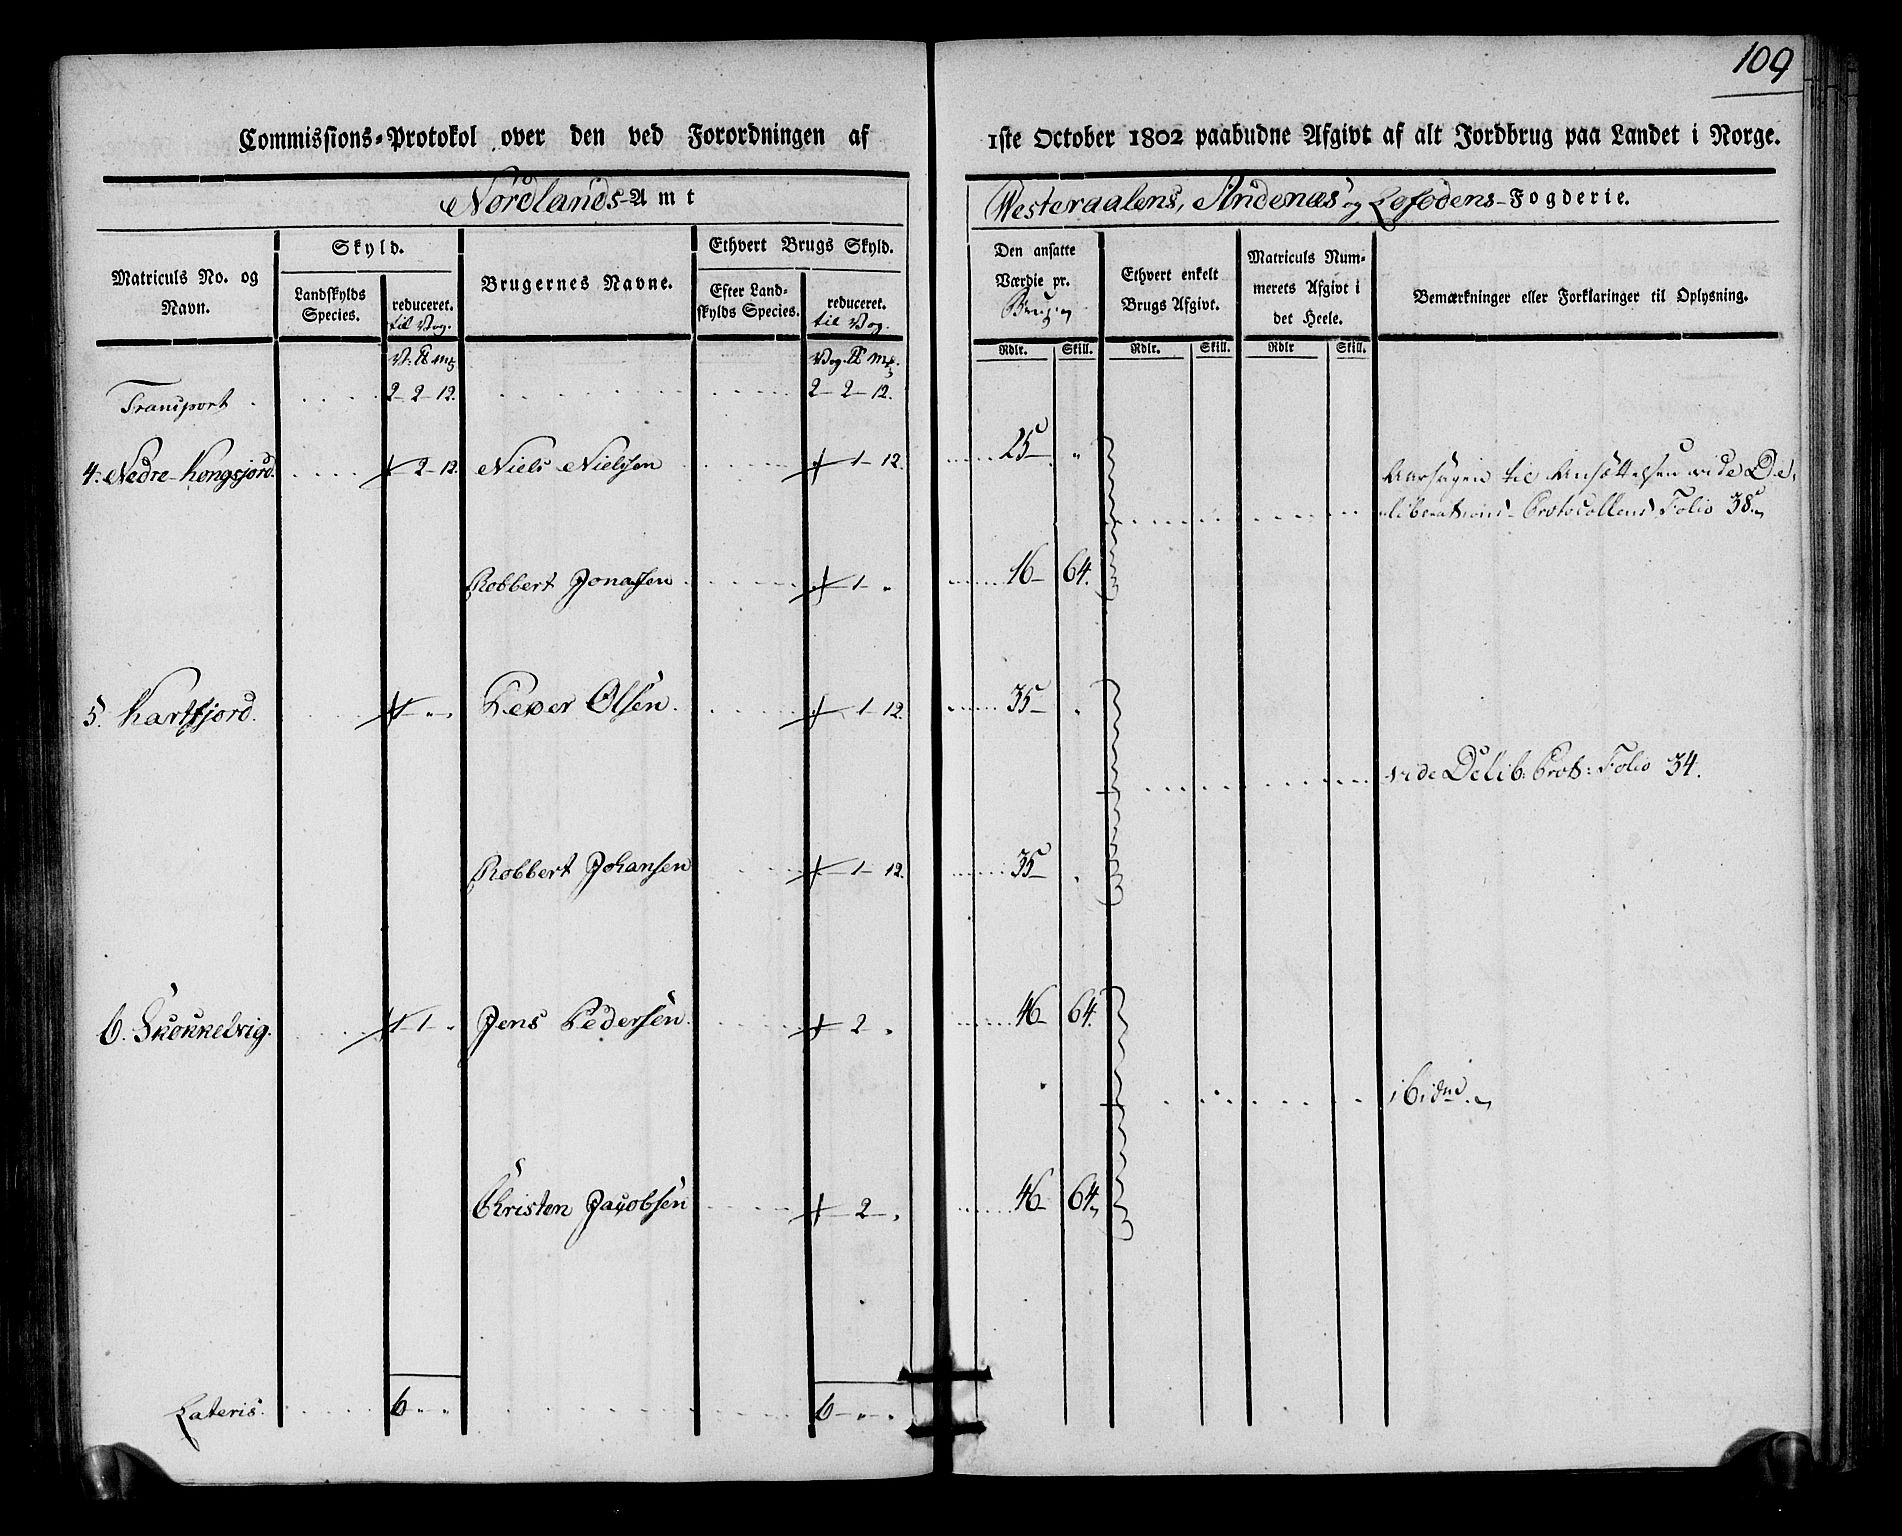 109
Commissions-Protokol over den ved Forordningen af 1ste October 1802 paabudne Afgivt af alt Jordbrug paa Landet i Norge.
Nordlands-Amt Westeraalens, Andenæs og Lofodens-Fogderie.
Matriculs No. og Navn.
Skyld.
Landskylds Species.
reduceret. til Vog.
Brugernes Navne.
Ethvert Brugs Skyld.
Efter Landskylds Species.
reduceret. til Vog.
Den ansatte Værdie pr.
Ethvert enkelt Brugs Afgivt.
Matriculs Nummerets Afgivt i det Heele.
Bemærkninger eller Forklaringer til Oplysning.
Rdlr. Skill. Rdlr. Skill. Rdlr Skill.
Transport 2-2-12. 2-2-12.
4. Nedre-Kongsjord. 2-12. Niels Nielsen 1-12. 25 "
Aarsagen til Ansættelsen vide De-
liberations-Protocollens Folio 38.
Robbert Jonassen 1- " 16- 64.
5. Kartfjord. 1- " Peder Olsen. 1-12. 35-
vide Delib: Prot: Folio 34.
Robbert Johansen 1-12. 35-
6. Skonnelvig. 1 1- Jens Pedersen. 2 46- 64.
ibidm.
Christen Jacobsen 2- 46- 64.
Lateris. 6 - " " 6 - " "